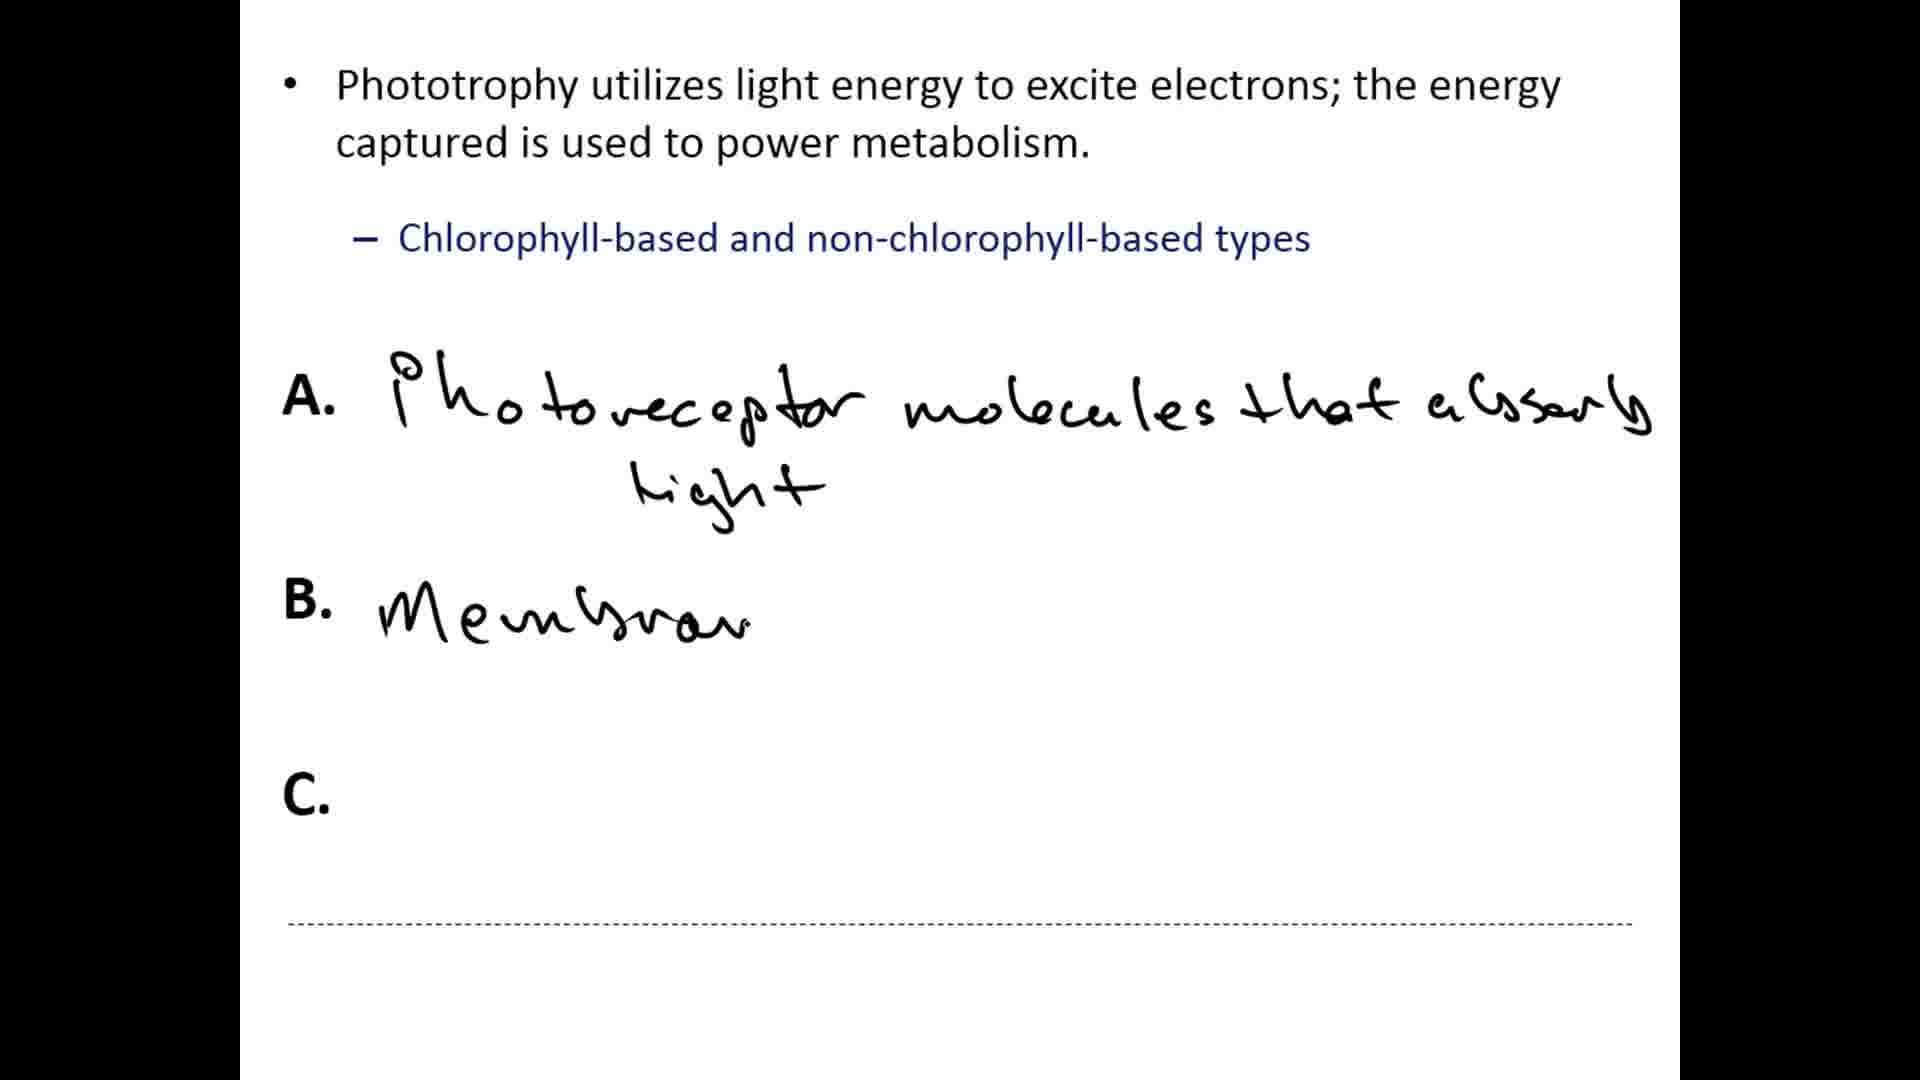 • Phototrophy utilizes light energy to excite electrons; the energy
captured is used to power metabolism.
– Chlorophyll-based and non-chlorophyll-based types
A. Photoreceptor molecules that absorb
light
B. Membran
C.